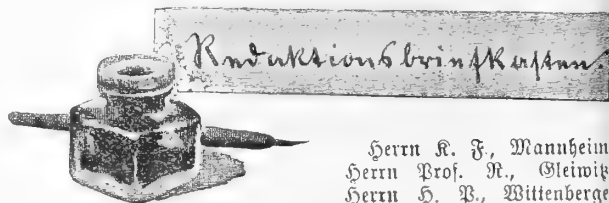 Redaktionsbriefkasten.
Herrn K. F., Mannheim
Herrn Prof. R., Gleiwitz
Herrn H. P., Wittenberge